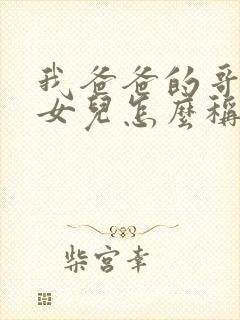 我爸爸的哥
女兒怎麼稱
柴宮幸